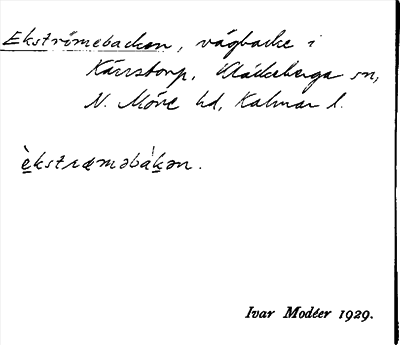 Ekströmebacken, vägbacke i
Kärrstorp, Kläckeberga sn,
N. Möre hd, Kalmar l.
èkstrœməbàkən.
Ivar Modéer 1929.